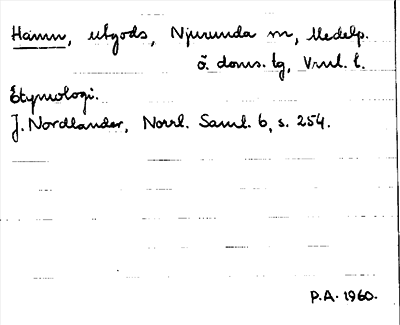 Hamn, utgods, Njurunda sn, Medelp.
ö. doms. tg, Vnl. l.
Etymologi.
J. Nordlander, Norrl. Saml. 6, s. 254.
P.A. 1960.